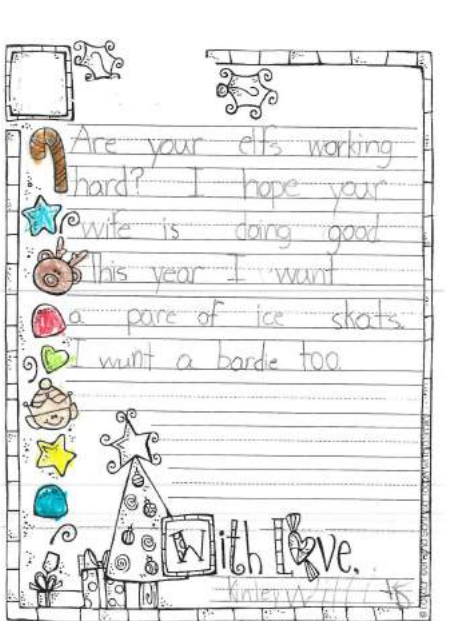 Are your elfs working
hard? I hope your
wife is doing good
This year I wunt
a pare of ice skats.
I wunt a bardie too.
With Love,
Kinley